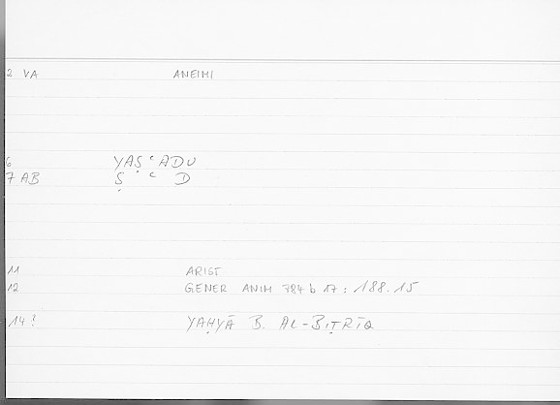 2 VA ANEIMI
6 YAṢʿADU
7 AB Ṣ ʿ D
11 ARIST
12 GENER ANIM 784 b 17 : 188.15
14! YAḤYĀ B. AL-BIṬRĪQ